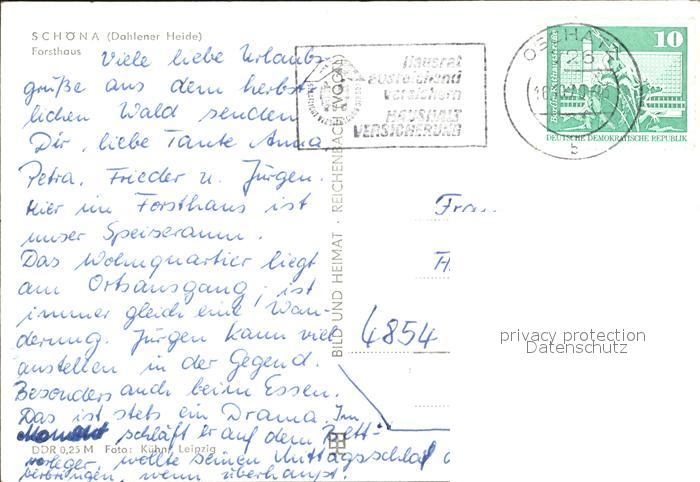 SCHÖNA (Dahlener Heide)
Forsthaus
Viele liebe Urlaubs-
grüße aus dem herbst-
lichen Wald senden
Dir, liebe Tante Anna
Petra, Frieder u. Jürgen.
Hier im Forsthaus ist
unser Speiseraum.
Das Wohnquartier liegt
am Ortsausgang, ist
immer gleich eine Wan-
derung. Jürgen kann viel
anstellen in der Gegend.
Besonders auch beim Essen.
Das ist stets ein Drama. Im
Moment schläft er auf dem Bett-
vorleger, wollte seinen Mittagsschlaf
verbringen, wenn überhaupt.
DDR 0,25 M Foto: Kühn, Leipzig
BILD UND HEIMAT · REICHENBACH (VOGTL)
Hausrat
ausreichend
versichern
HAUSHALT
VERSICHERUNG
OSCHATZ
726
10
DEUTSCHE DEMOKRATISCHE REPUBLIK
Frau
H
4854
privacy protection
Datenschutz